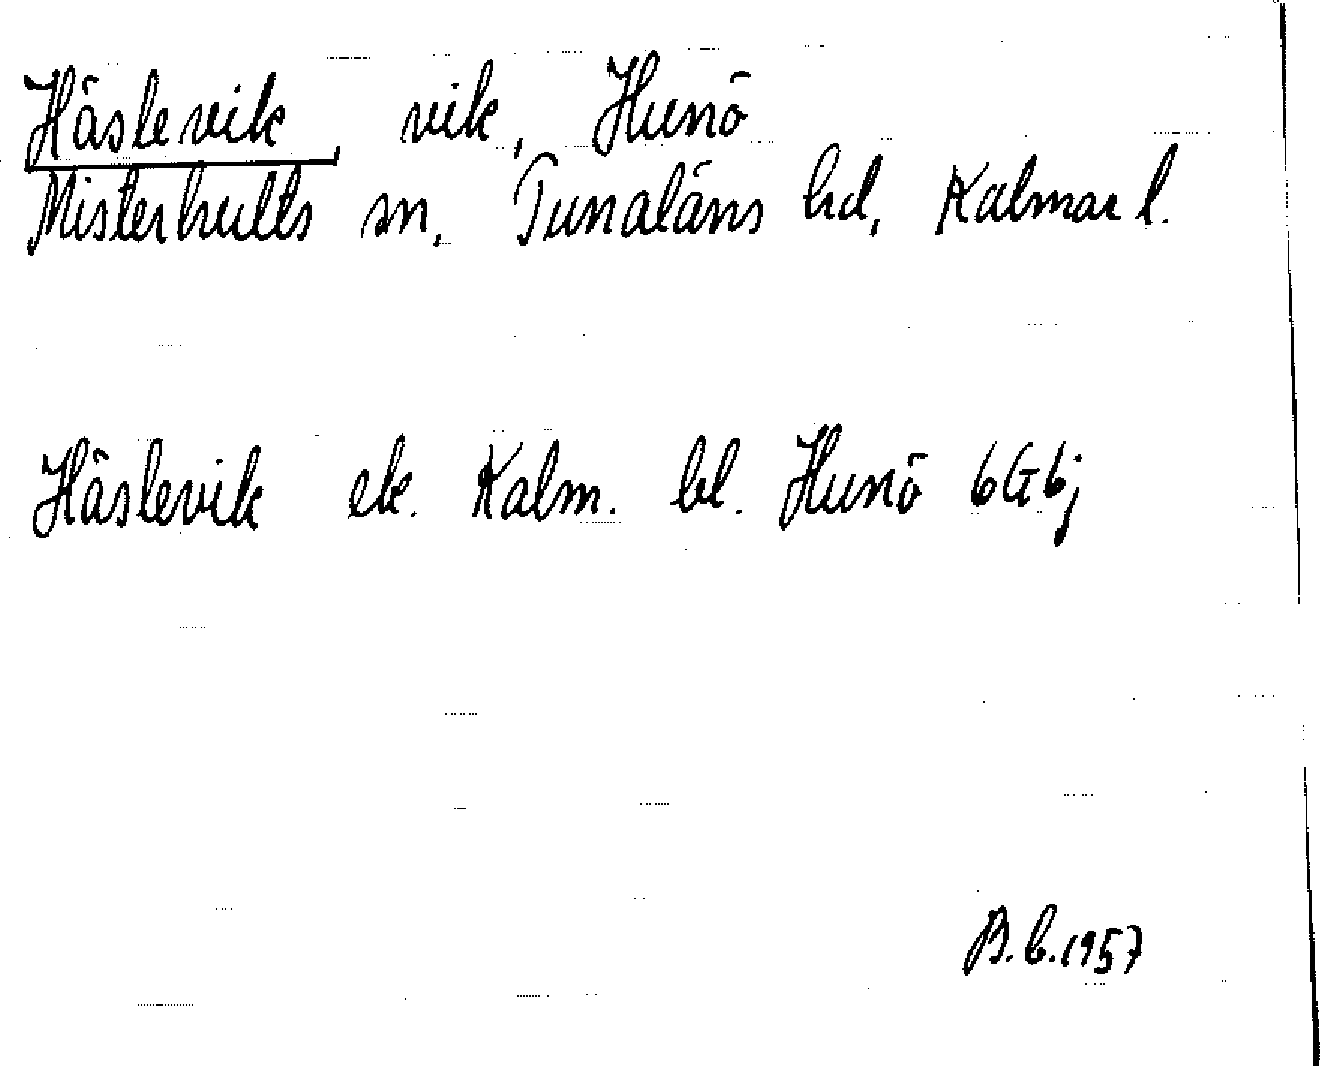 Häslevik, vik, Hunö
Misterhults sn, Tunaläns hd, Kalmar l.
Häslevik ek. Kalm. bl. Hunö 6G6j
B.b.1957